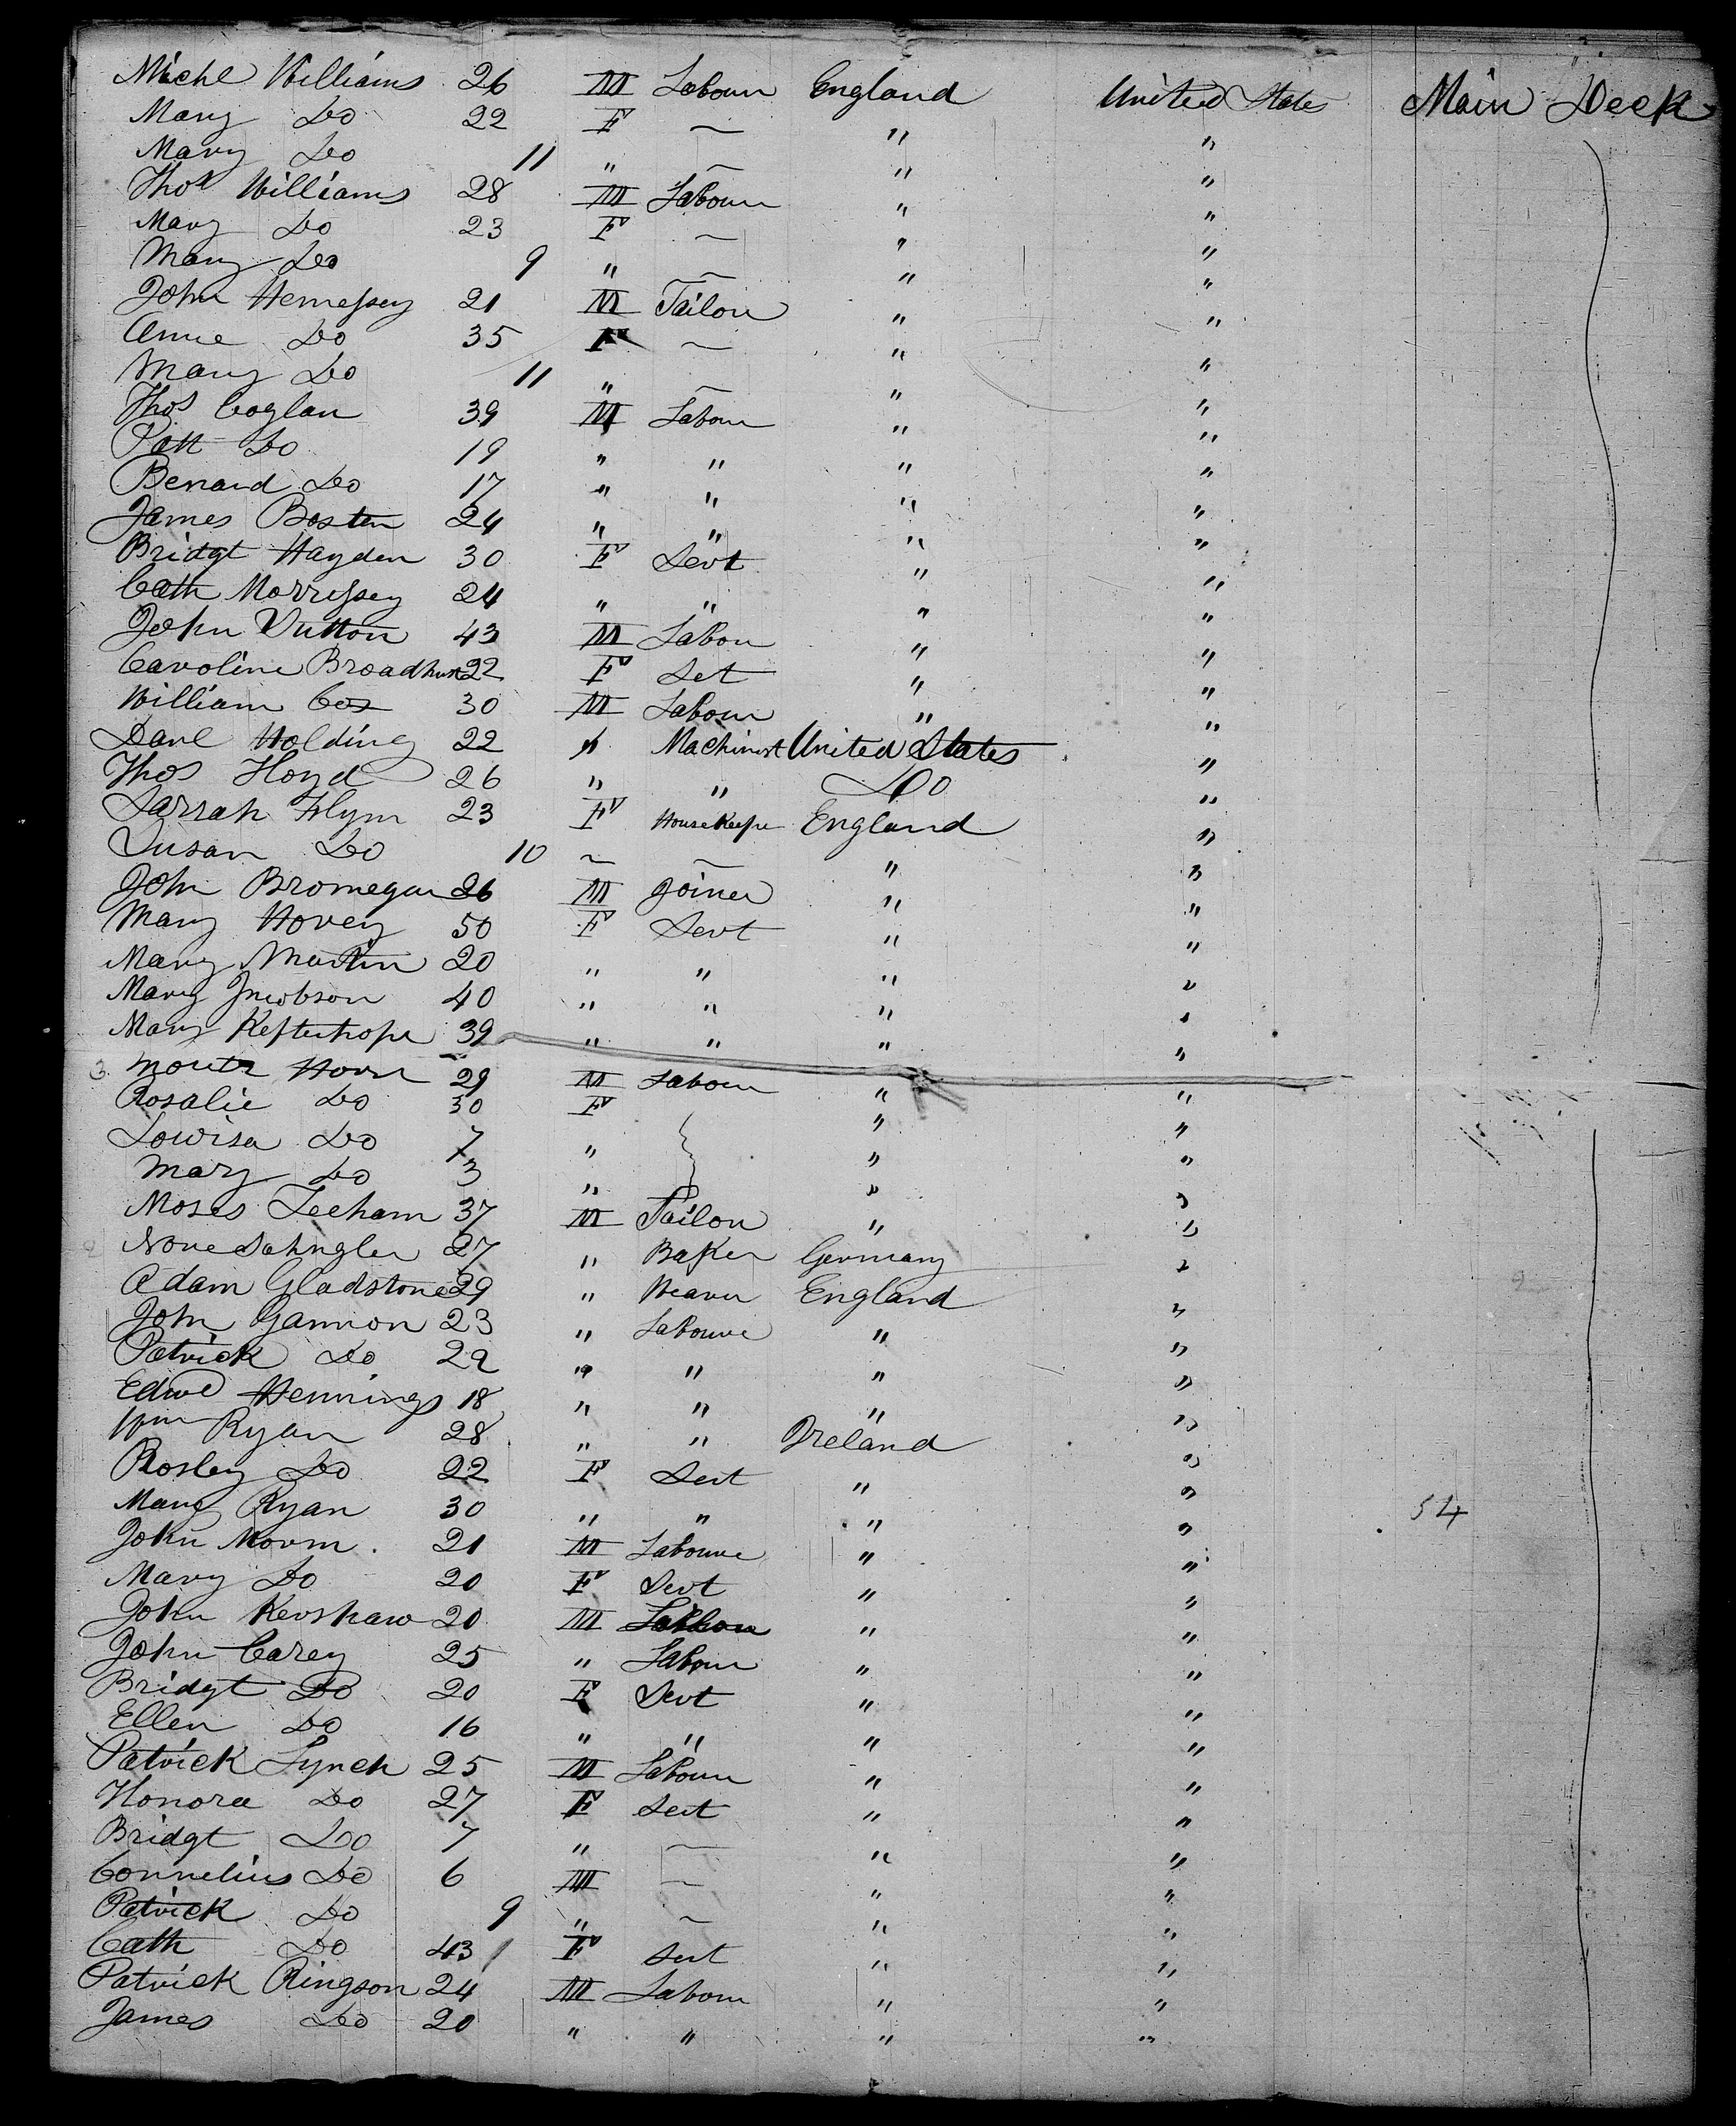 Michl Williams 26 M Labour England United States Main Deck
Mary Do 22 F ~ " "
Mary Do 11 " ~ " "
Thos Williams 28 M Labour " "
Mary Do 23 F ~ " "
Mary Do 9 " ~ " "
John Hennessey 21 M Tailor " "
Anne Do 35 F ~ " "
Mary Do 11 " ~ " "
Thos Coglan 39 M Labour " "
Patt Do 19 " " " "
Benard Do 17 " " " "
James Bosten 24 " " " "
Bridgt Hayden 30 F Servt " "
Cath Morrissey 24 " " " "
John Dutton 43 M Labou " "
Caroline Broadhurst 22 F Set " "
William Cox 30 M Labour " "
Danl Holding 22 " Machinist United States "
Thos Floyd 26 " " Do "
Sarrah Flynn 23 F House Keeper England "
Susan Do 10 ~ ~ " "
John Bromegan 26 M Joiner " "
Mary Hovey 50 F Servt " "
Mary Martin 20 " " " "
Mary 40 " " " "
Mary 39 " " " "
29 M Labour " "
Rosalie Do 30 F " "
Lowisa Do 7 " " "
Mary Do 3 " " "
Moses Leeham 37 M Tailor " "
27 " Baker Germany "
Adam Gladstone 29 " Weaver England "
John Gannon 23 " Laboure " "
Patrick Do 22 " " " "
Edwd Hennings 18 " " " "
Wm Ryan 28 " " Ireland "
Rosley Do 22 F Sert " "
Mary Ryan 30 " " " " 54
John Morm 21 M Laboure " "
Mary Do 20 F Servt " "
John Kershaw 20 M Labour " "
John Carey 25 " Labour " "
Bridgt Do 20 F Servt " "
Ellen Do 16 " " " "
Patrick Lynch 25 M Labour " "
Honora Do 27 F Sert " "
Bridgt Do 7 " ~ " "
Cornelius Do 6 M ~ " "
Patrick Do 9 " ~ " "
Cath Do 43 F Sert " "
Patrick Ringson 24 M Labour " "
James Do 20 " " " "